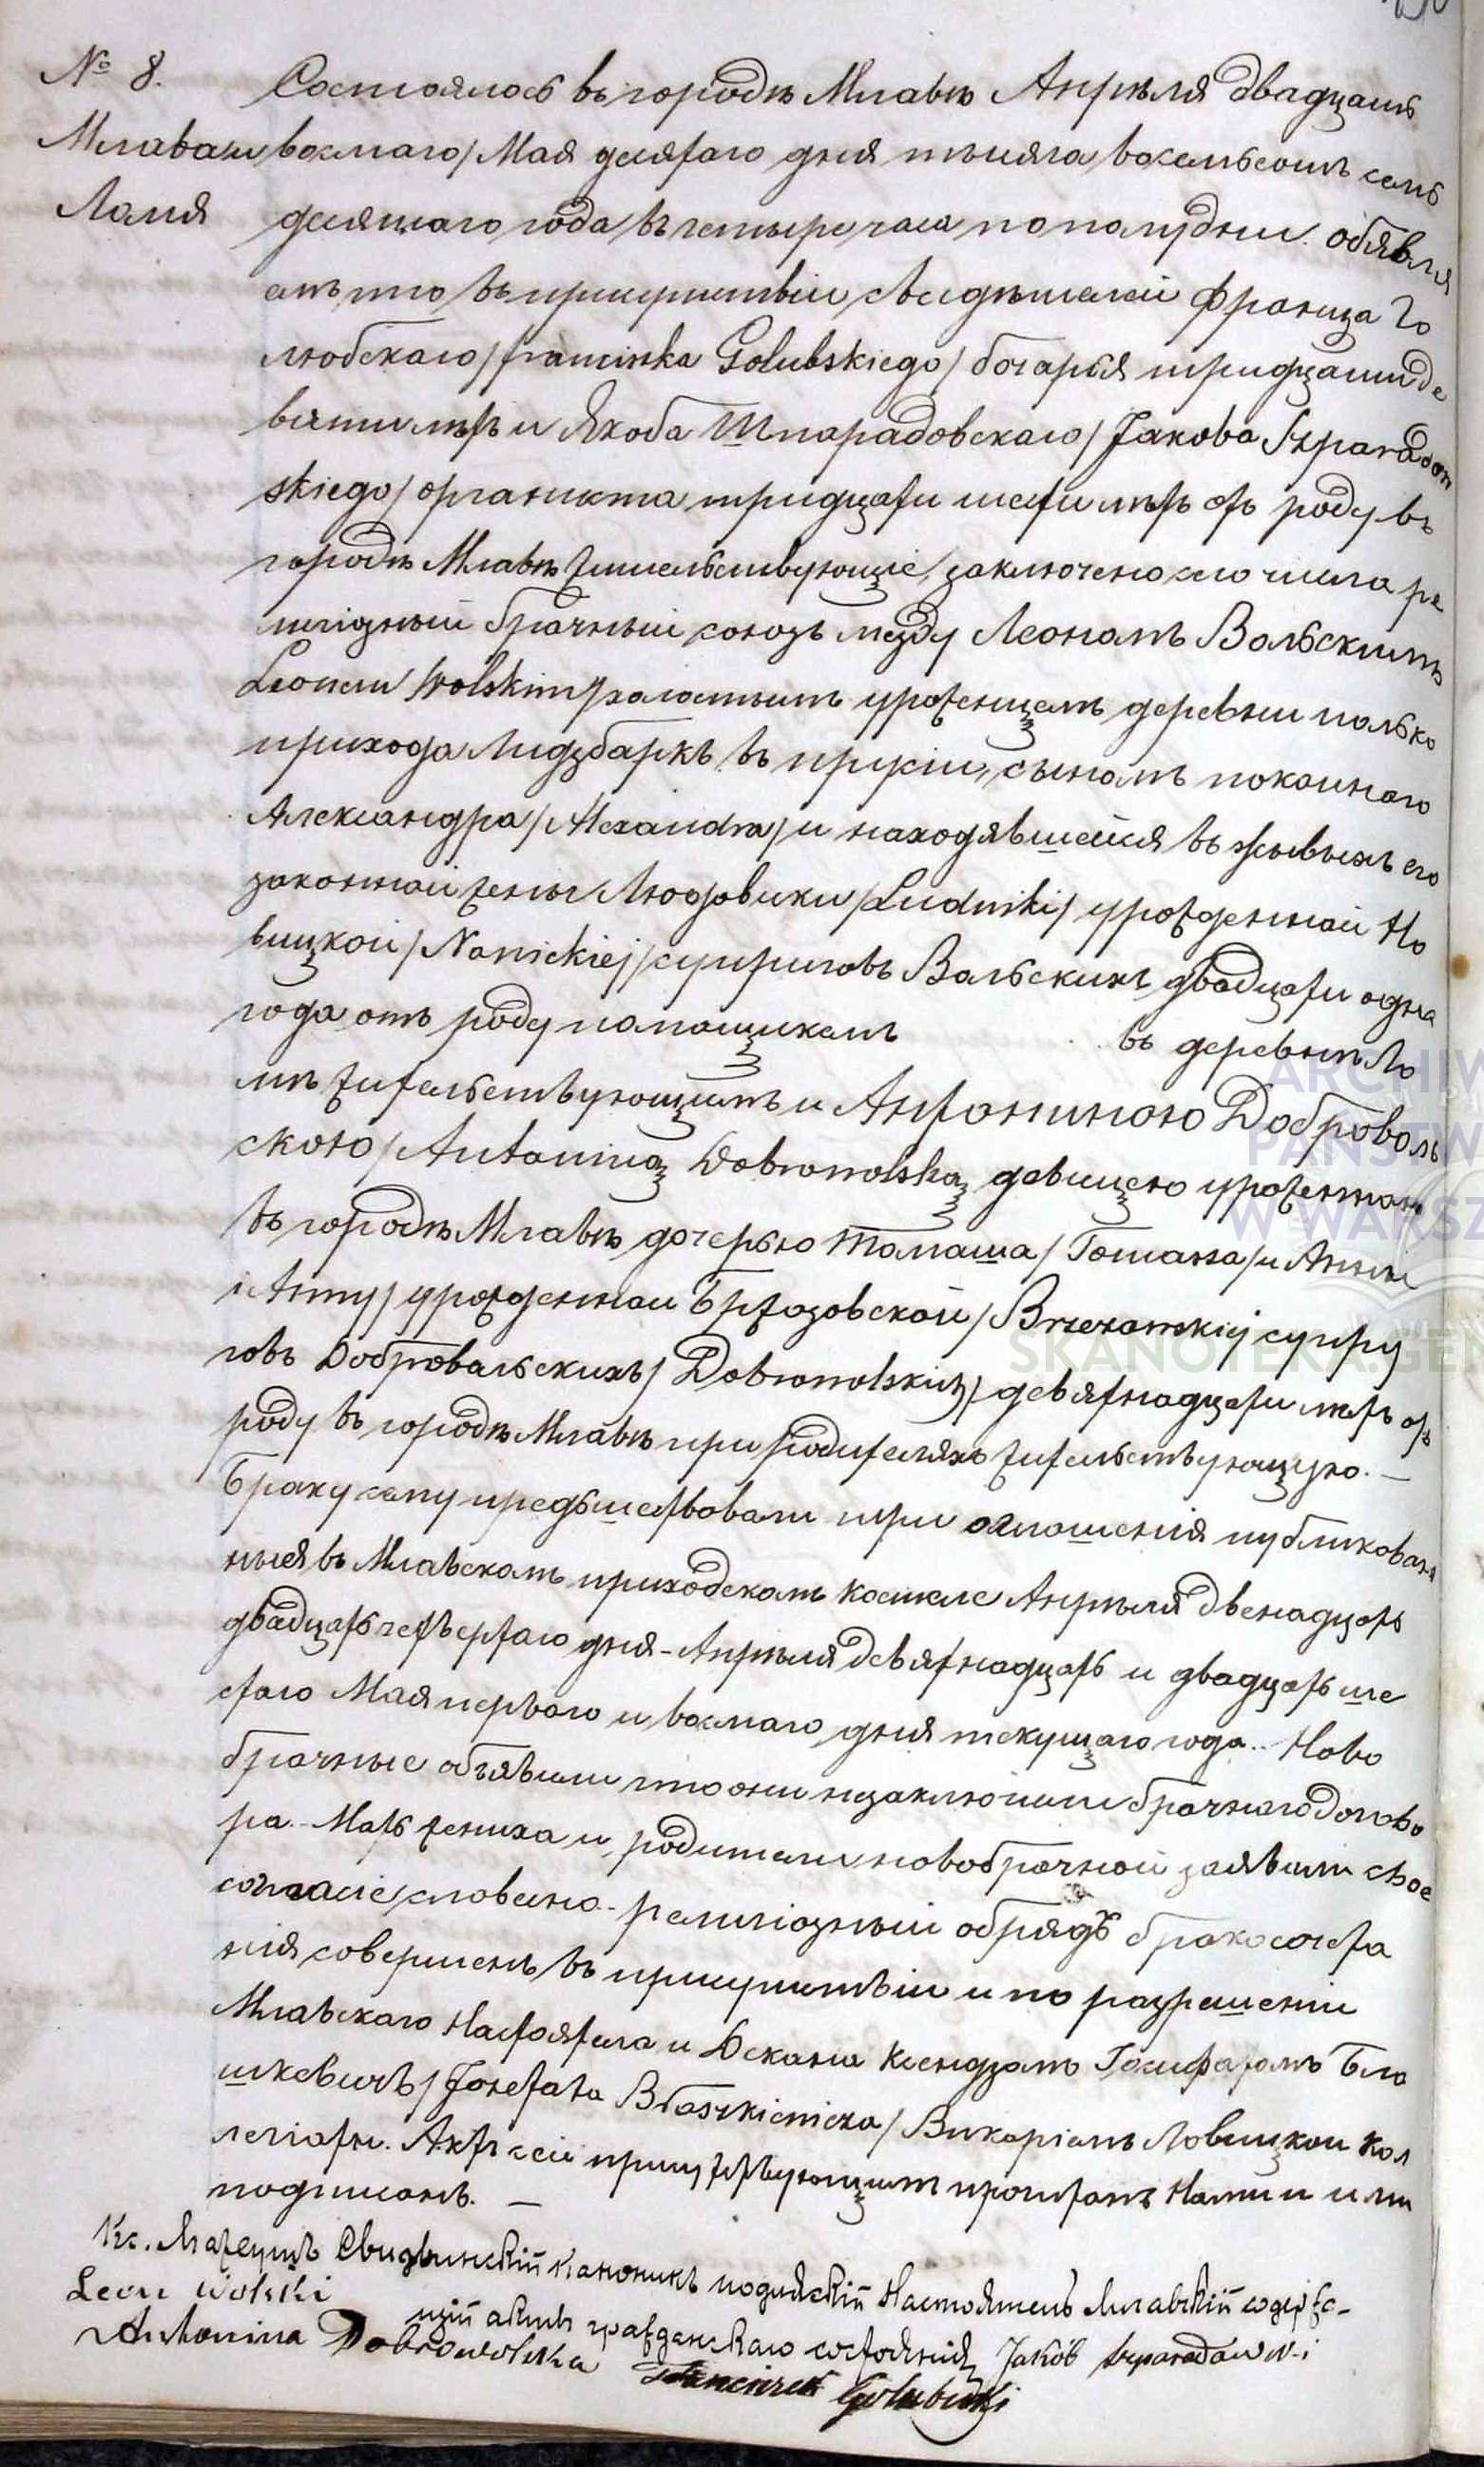 № 8.
Млава и
Ломя
Состоялось въ городѣ Млавѣ Апрѣля двадцать
восмаго/Мая десятаго дня тысяча восемьсотъ семь
десятаго года въ четыре часа по полудни. обявля
емъ, что въ присутствіи свидѣтелей Франца Го
любскаго/Franciszka Golubskiego/ богарья тридцати де
вяти лѣтъ и Якоба Шпарадовскаго/Jakoba Szparadow
skiego/ органиста тридцати шести лѣтъ отъ роду въ
городѣ Млавѣ жительствующіе, заключено сего числа ре
лигіозный брачный союзъ между Леономъ Вольскимъ
Leonem Wolskim/ холостымъ уроженцемъ деревни полько
прихода Лидзбаркъ въ прусіи, сыномъ покоинаго
Александра/Alexandra/ и находявшейся въ живыхъ его
законной жены Людовики/Ludwiki/ урожденной Но
вицкой/Nowickiej/ супруговъ Вольскихъ двадцати одна
года отъ роду помощикемъ въ деревнѣ Ло
мѣ жительствующимъ и Антониною Доброволь
скою/Antoniną Dobrowolską девицею урожденною
въ городѣ Млавѣ, дочерью Томаша/Tomasza/ и Анны
/Anny/ урожденной Бржозовской/Brzozowskiej супру
говъ Добровольскихъ/Dobrowolskich/ девятнадцати лѣтъ отъ
роду въ городѣ Млавѣ при родителяхъ жительствующую. —
Браку сему предшествовали три оглашенія публикован
ныя въ Млавскомъ приходскомъ костеле Апрѣля двенадцать
двадцать четвертаго дня - Апрѣля девятнадцать и двадцать ше
стаго Мая перваго и восмаго дня текущаго года. Ново
брачные обѣявили что они незаключили брачнаго догово
ра. Мать жениха и родители новобрачной заявили свое
согласіе словесно. религіозный обрядъ бракосочета
нія совершенъ въ присутствіи и по разрешеніи
Млавскаго Настоятеля и Декана Ксендзомъ Іосифатомъ Бла
шкевичъ/Jozefata Błaszkiewicza/ Викаріемъ Ловицкой Кол
легіаты. Актъ сей присутствующимъ прочитанъ Нами и ими
подписанъ. —
Кс. Матеушъ Свидвинскій Каноникъ подляскій Настоятель Млавскій содержа-
щій актъ гражданскаго состоянія
Leon Wolski
Antonina Dobrowolska
Jakób Szparadowski
Franciszek Golubski
ARCHIW
PAŃSTW
W WARSZ
SKANOTEKA.GEN